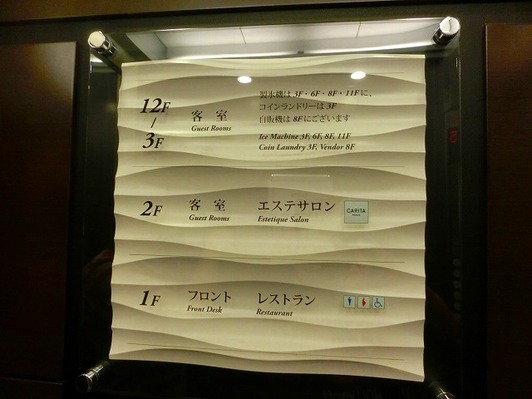 12F
/
3F
客室
Guest Rooms
製氷機は3F・6F・8F・11Fに、
コインランドリーは3F
自販機は8Fにございます
Ice Machine 3F, 6F, 8F, 11F
Coin Laundry 3F, Vendor 8F
2F
客室
Guest Rooms
エステサロン
Estetique Salon
CARITA
1F
フロント
Front Desk
レストラン
Restaurant